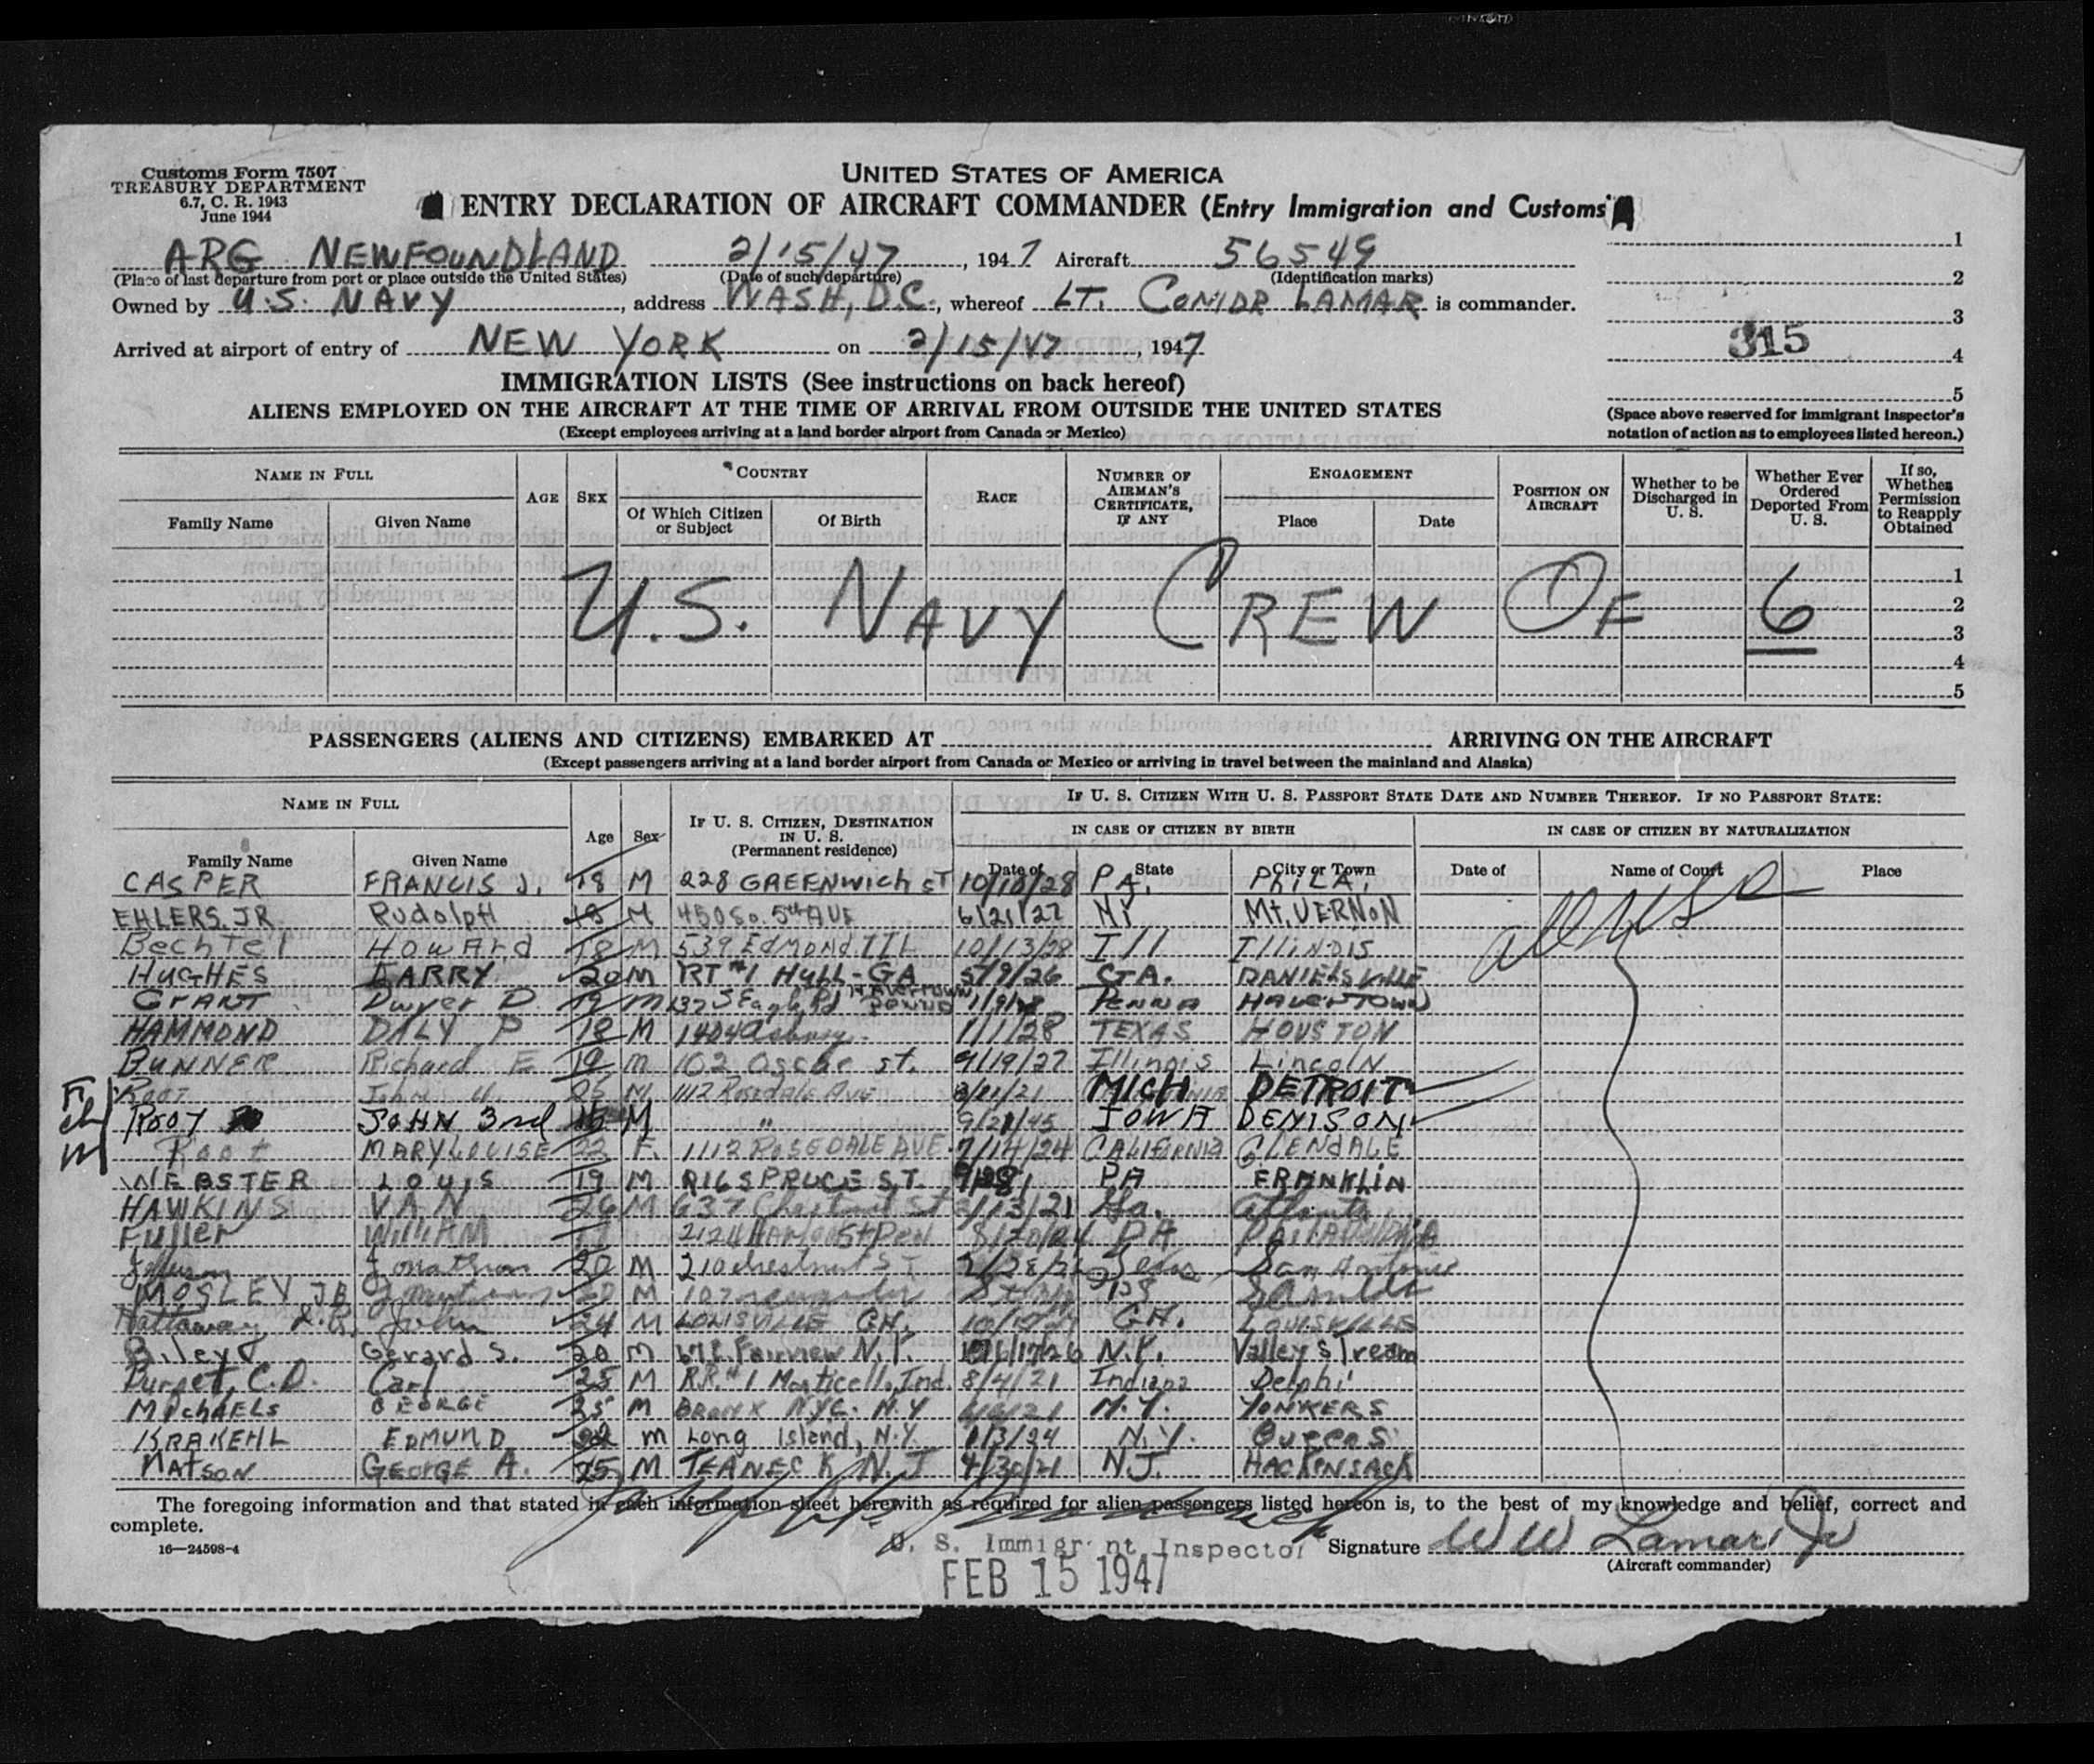 Customs Form 7507
TREASURY DEPARTMENT
6.7, C. R. 1943
June 1944
UNITED STATES OF AMERICA
ENTRY DECLARATION OF AIRCRAFT COMMANDER (Entry Immigration and Customs)
ARG NEWFOUNDLAND 2/15/47, 1947 Aircraft 56549
(Place of last departure from port or place outside the United States) (Date of such departure) (Identification marks)
Owned by U.S. NAVY, address WASH, D.C., whereof LT. COMDR LAMAR is commander.
Arrived at airport of entry of NEW YORK on 2/15/47, 1947
1
2
3
315
4
5
(Space above reserved for immigrant inspector's
notation of action as to employees listed hereon.)
IMMIGRATION LISTS (See instructions on back hereof)
ALIENS EMPLOYED ON THE AIRCRAFT AT THE TIME OF ARRIVAL FROM OUTSIDE THE UNITED STATES
(Except employees arriving at a land border airport from Canada or Mexico)
NAME IN FULL
Family Name Given Name
AGE SEX
COUNTRY
Of Which Citizen or Subject
Of Birth
RACE
NUMBER OF AIRMAN'S CERTIFICATE, IF ANY
ENGAGEMENT
Place Date
POSITION ON AIRCRAFT
Whether to be Discharged in U. S.
Whether Ever Ordered Deported From U. S.
If so, Whether Permission to Reapply Obtained
U.S. NAVY CREW OF 6
1
2
3
4
5
PASSENGERS (ALIENS AND CITIZENS) EMBARKED AT ARRIVING ON THE AIRCRAFT
(Except passengers arriving at a land border airport from Canada or Mexico or arriving in travel between the mainland and Alaska)
NAME IN FULL
Family Name Given Name
Age Sex
IF U. S. CITIZEN, DESTINATION IN U. S. (Permanent residence)
IF U. S. CITIZEN WITH U. S. PASSPORT STATE DATE AND NUMBER THEREOF. IF NO PASSPORT STATE:
IN CASE OF CITIZEN BY BIRTH
IN CASE OF CITIZEN BY NATURALIZATION
Date of State City or Town Date of Name of Court Place
CASPER FRANCIS J. 18 M 228 GREENWICH ST 10/10/28 PA. PHILA.
EHLERS, JR. Rudolph 18 M 450 So. 5th AVE 6/21/27 NY Mt. VERNON
Bechtel Howard 18 M 539 EDMOND ILL 10/13/28 Ill ILLINOIS
HUGHES LARRY 20 M RT #1 Hull-GA 5/9/26 GA. DANIELSVILLE
GRANT Dwyer D. 19 M 32 S Eagle Rd HAVERTOWN PENNA PENNA HAVERTOWN
HAMMOND DALY P 18 M 1404 1/1/28 TEXAS HOUSTON
BUNNER Richard E 19 M 102 Oscar st. 9/19/27 Illinois Lincoln
ROOT John H. 25 M 1112 Rosedale Ave 3/21/21 MICH DETROIT
ROOT JOHN 3rd M " 9/21/45 IOWA DENISON
Root MARY LOUISE 22 F. 1112 ROSEDALE AVE. 7/14/24 CALIFORNIA GLENDALE
WEBSTER Louis 19 M 216 SPRUCE ST. PA FRANKLIN
HAWKINS VAN 26 M 637 Chestnut St 2/13/21 Ga. Atlanta
Fuller WILLIAM 8/20/24 PA PHILADELPHIA
Jonathan 20 M 210 chestnut ST Texas, San Antonio
MOSLEY JR M
Hattaway J.R. John 24 M LOUISVILLE GA. GA. LOUISVILLE
Riley Gerard S. 20 M Fairview N.Y. N.Y. Valley Stream
Purpet, C.D. Carl 25 M R.R. #1 Monticello, Ind. 8/4/21 Indiana Delphi
MICHAELS GEORGE 25 M BRONX NYC. N.Y N.Y. YONKERS
KRAKEHL EDMUND 22 M Long Island, N.Y. 1/3/24 N.Y. Queens
MATSON GEORGE A. 25 M TEANECK N.J 4/30/21 N.J. HACKENSACK
The foregoing information and that stated in each information sheet herewith as required for alien passengers listed hereon is, to the best of my knowledge and belief, correct and
complete.
16—24598-4
U. S. Immigrant Inspector
FEB 15 1947
Signature W W Lamar Jr
(Aircraft commander)